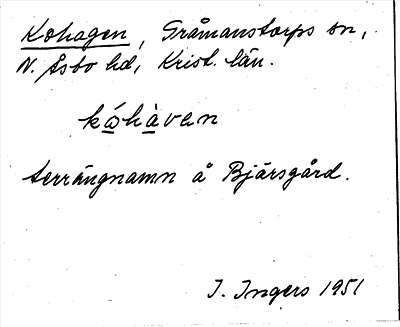 Kohagen, Gråmanstorps sn,
N. Åsbo hd, Krist. län.
kóhàven
terrängnamn å Bjärsgård.
I. Ingers 1951